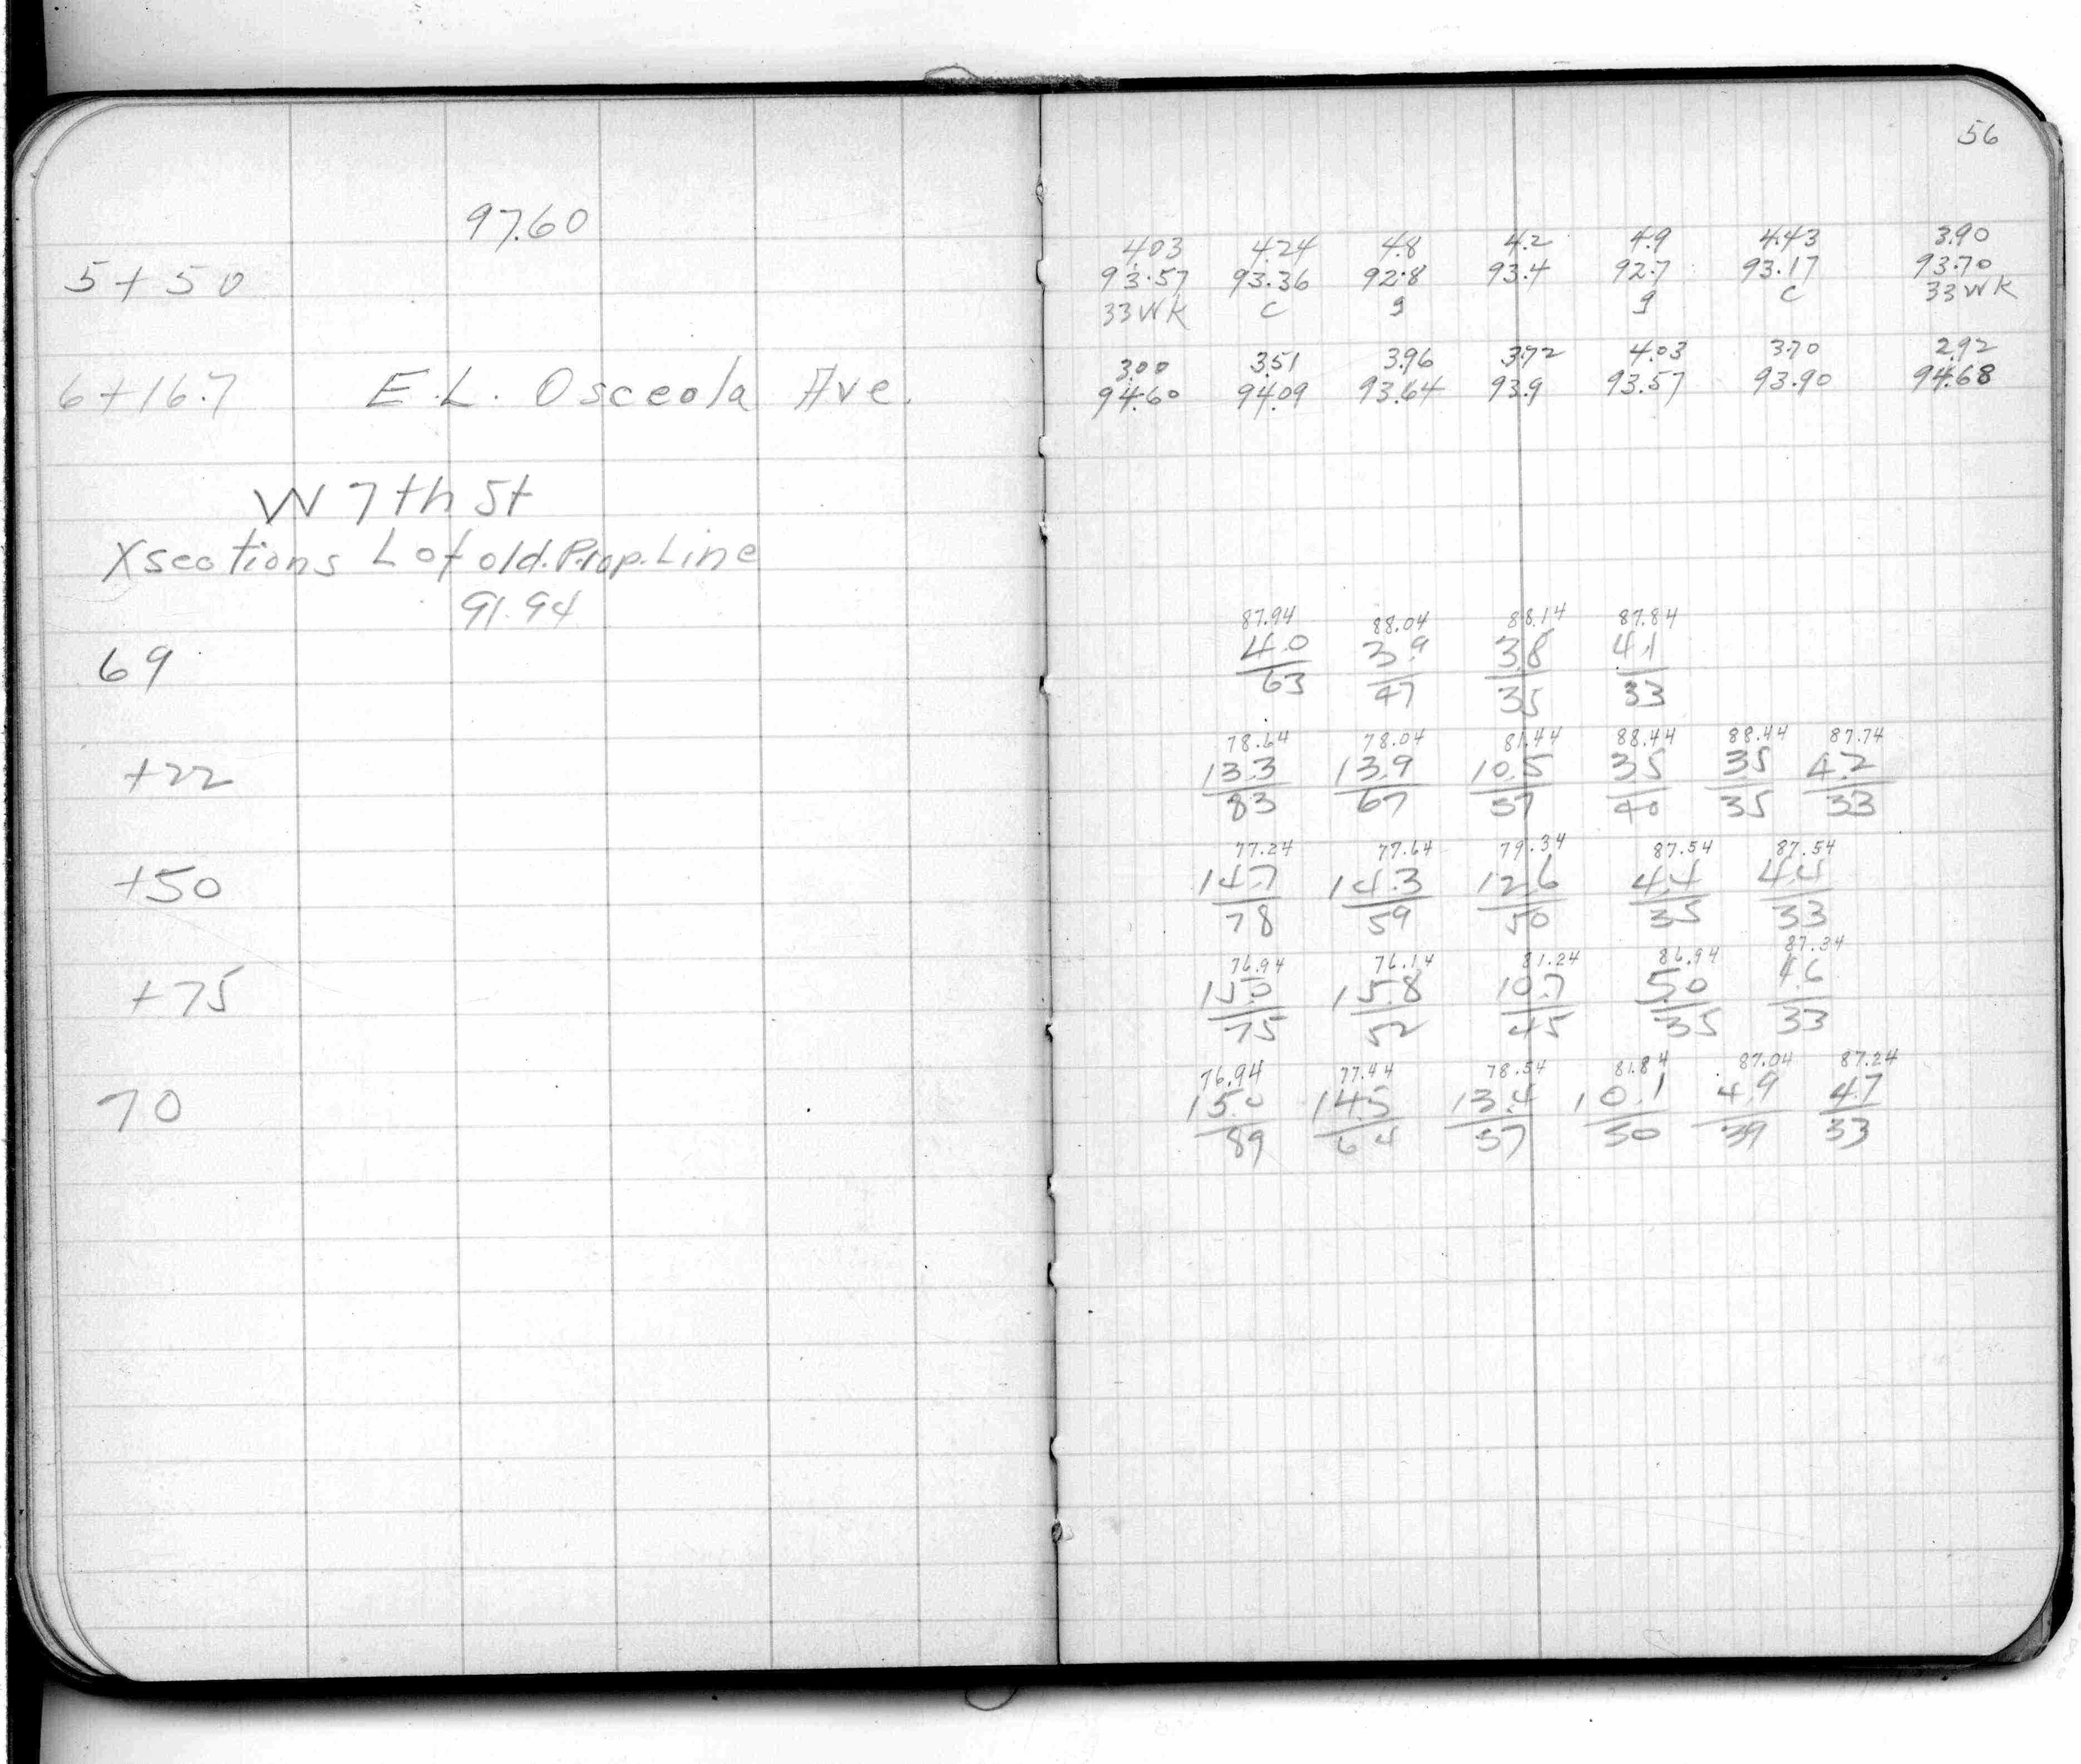 56
97.60
4.03 4.24 4.8 4.2 4.9 4.43 3.90
5+50 93.57 93.36 92.8 93.4 92.7 93.17 93.70
33WK C g g C 33WK
3.00 3.51 3.96 3.72 4.03 3.70 2.92
6+16.7 E.L. Osceola Ave. 94.60 94.09 93.64 93.9 93.57 93.90 94.68
W 7th St
Xsections L of old.Prop.Line
91.94
87.94 88.04 88.14 87.84
69 4.0 3.9 3.8 4.1
63 47 35 33
78.64 78.04 81.44 88.44 88.44 87.74
+22 13.3 13.9 10.5 3.5 3.5 4.2
83 67 57 40 35 33
77.24 77.64 79.34 87.54 87.54
+50 14.7 14.3 12.6 4.4 4.4
78 59 50 35 33
76.94 76.14 81.24 86.94 87.34
+75 15.0 15.8 10.7 5.0 4.6
75 52 45 35 33
76.94 77.44 78.54 81.84 87.04 87.24
70 15.0 14.5 13.4 10.1 4.9 4.7
89 64 57 50 39 33